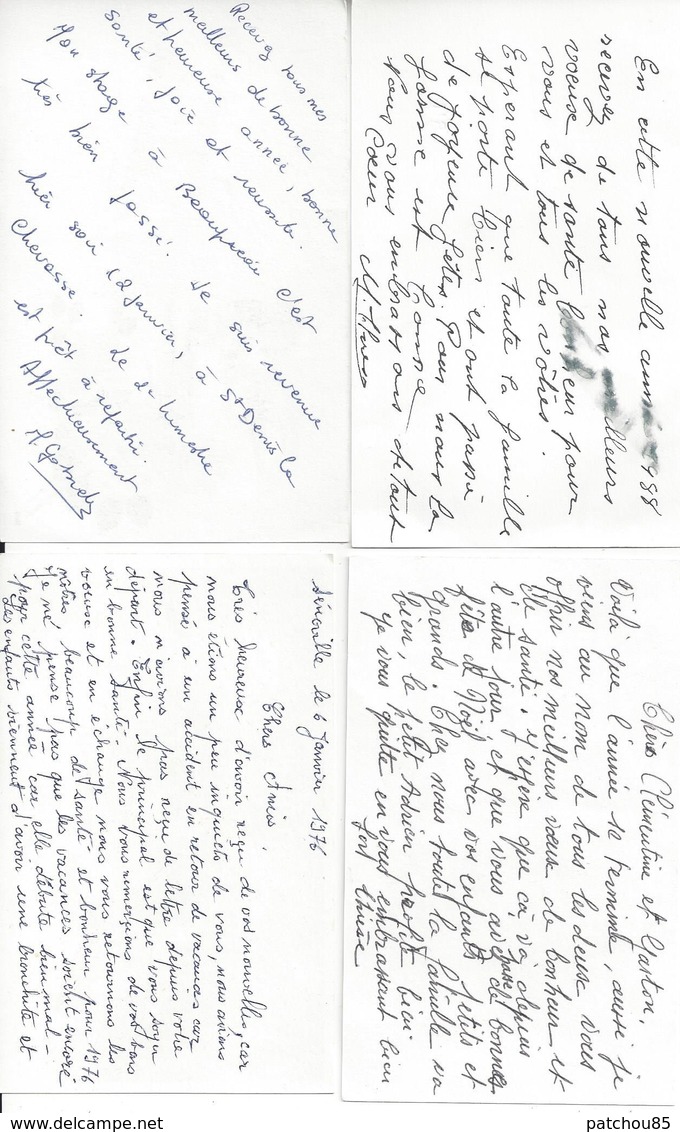 Recevez tous mes
meilleurs de bonne
et heureuse année, bonne
santé, joie et réussite.
Mon stage à Beaupréau c'est
très bien passé. Je suis revenue
hier soir (2 Janvier) à St Denis la
Chevasse. Le 2e trimestre
est prêt à repartir.
Affectueusement
En cette nouvelle année 1988
recevez de tous nos meilleurs
voeux de santé bonheur pour
vous et tous les vôtres.
Espérant que toute la famille
se porte bien et ont passé
de joyeuse fêtes. Pour nous la
forme est bonne
Nous vous embrassons de tout
Coeur
le 6 Janvier 1976
Chers Amis,
Très heureux d'avoir reçu de vos nouvelles, car
nous étions un peu inquiets de vous, nous avions
pensé à un accident en retour de vacances car
nous n'avions pas reçu de lettre depuis votre
départ. Enfin le principal est que vous soyez
en bonne santé. Nous vous remercions de vos bons
voeux et en échange nous vous retournons les
nôtres beaucoup de santé et bonheur pour 1976
Je ne pense pas que les vacances soient encore
pour cette année car elle débute bien mal -
Les enfants viennent d'avoir une bronchite et
Chers Clémentine et Gaston,
Voilà que l'année se termine, aussi je
viens au nom de tous les deux vous
offrir nos meilleurs voeux de bonheur et
de santé. J'espère que ça va depuis
l'autre jour et que vous avez passé de bonnes
fêtes de Noël avec vos enfants petits et
grands. Chez nous toute la famille va
bien, le petit Adrien profite bien.
Je vous quitte en vous embrassant bien
fort Thérèse
patchou85